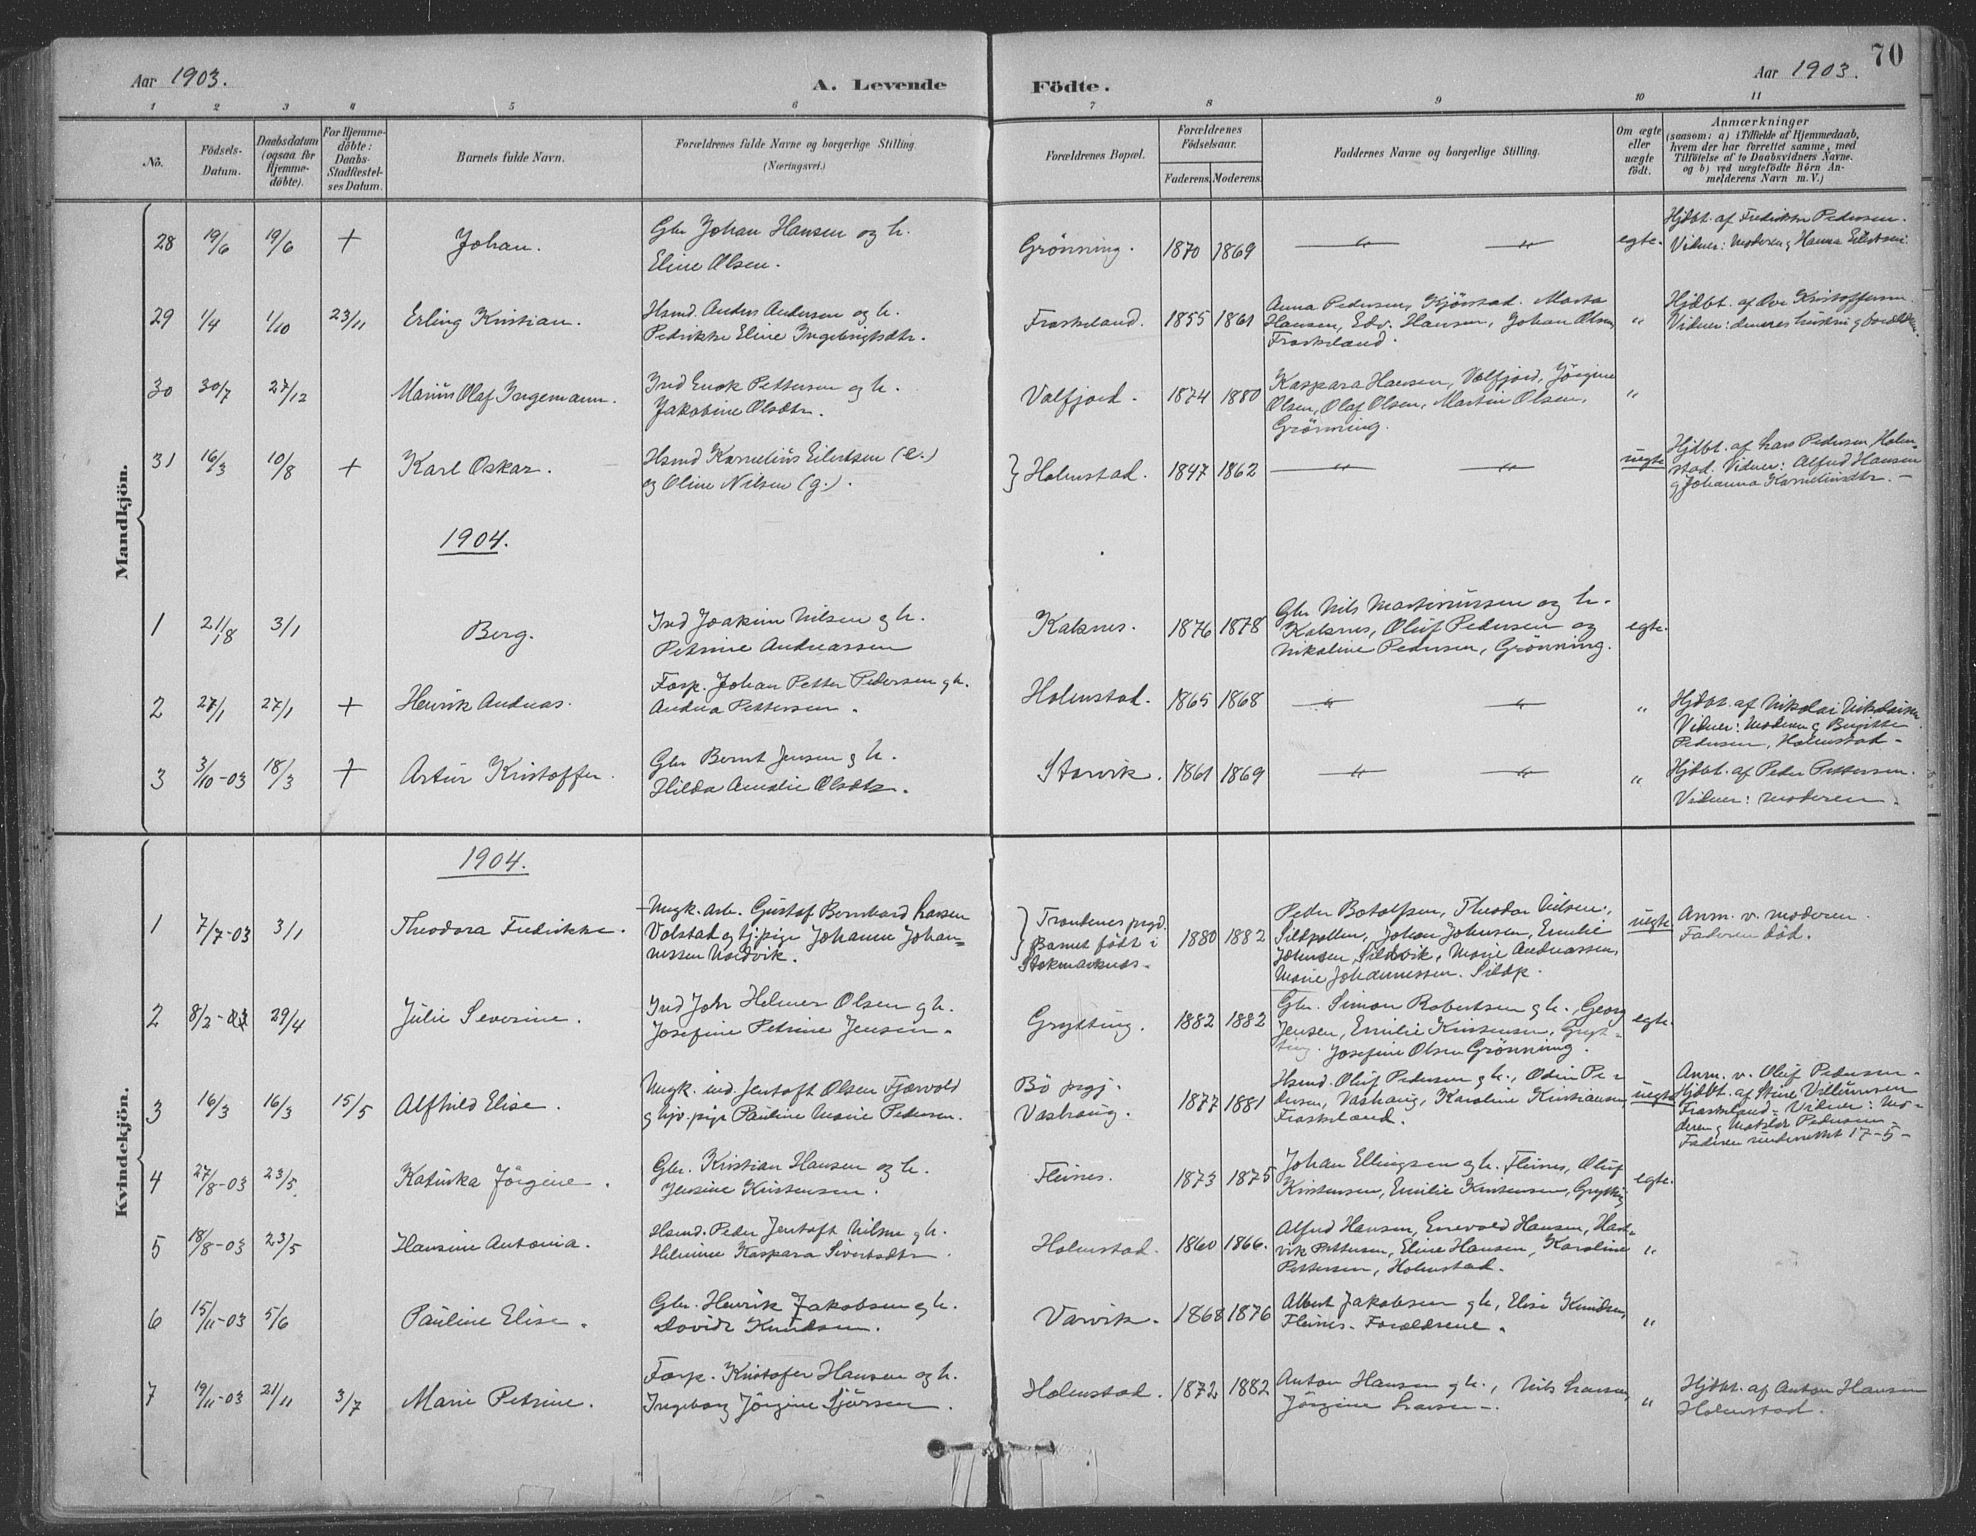 70
Aar 1903.
A. Levende Födte.
Aar 1903.
1 2 3 4 5 6 7 8 9 10 11
No.
Födsels-Datum.
Daabsdatum (ogsaa for Hjemmedöbte).
For Hjemmedöbte: Daabs-Stadfestelses Datum.
Barnets fulde Navn.
Forældrenes fulde Navne og borgerlige Stilling. (Næringsvei.)
Forældrenes Bopæl.
Forældrenes Födselsaar.
Faderens. Moderens.
Faddernes Navne og borgerlige Stilling.
Om ægte eller uægte födt.
Anmærkninger
(saasom: a) i Tilfælde af Hjemmedaab, hvem der har forrettet samme, med Tilföielse af to Daabsvidners Navne, og b) ved uægtefödte Börn Anmelderens Navn m. V.)
Mandkjön.
28 19/6 19/6 + Johan. Gbr Johan Hansen og h. Eline Olsen. Grönning. 1870 1869 — " — " egte. Hjdbt. af Fredrikke Pedersen. Vidner: Moderen g Hanna Eilertsen.
29 1/4 1/10 23/11 Erling Kristian. Hsmd. Anders Andersen og h. Pedrikke Eline Ingebrigtsdtr. Fraskeland. 1855 1861 Anna Pedersen, Kjörstad. Marta Hansen, Edv. Hansen, Johan Olsen, Fraskeland. " Hjdbt. af Ove Kristoffersen. Vidner: dennes hustru g forældrene.
30 30/7 27/12 Marius Olaf Ingemann. Ind Enok Pettersen og h. Jakobine Olsdtr. Valfjord. 1874 1880 Kaspara Hansen, Valfjord, Jörgine Olsen, Olaf Olsen, Martin Olsen, Grönning. "
31 16/3 10/8 + Karl Oskar. Hsmd Kornelius Eilertsen (e.) og Oline Nilsen (g.). } Holmstad. 1847 1862 — " — " uegte Hjdbt. af Lars Pedersen Holmstad. Vidner: Alfred Hansen g Johanna Korneliusdtr. —
1904.
1 21/8 3/1 Berg. Ind Joakim Nilsen g h. Petrine Andreassen Kalsnes. 1876 1878 Gbr Nils Martinussen og h. Kalsnes, Oluf Pedersen og Nikoline Pedersen, Grönning. egte.
2 27/1 27/1 + Henrik Andreas. Forp. Johan Petter Pedersen g h. Andrea Pettersen. Holmstad. 1865 1868 — " — " " Hjdbt. af Nikolai Nikolaisen. Vidner: Moderen g Birgitte Pedersen, Holmstad –
3 3/10-03 18/3 + Artur Kristoffer. Gbr Bernt Jensen g h. Hilda Amalie Olsdtr. Starvik. 1861 1869 — " — " " Hjdbt. af Peder Pettersen. Vidner: moderen.
Kvindekjön.
1904.
1 7/7-03 3/1 Theodora Fredrikke. Ungk. Arb. Gustaf Bernhard Larsen Volstad og tj.pige Johanne Johannessen Nordvik. } Trondenes prgd. Barnet födt i Stokmarknes. 1880 1882 Peder Botolfsen, Theodor Nilsen, Sildpollen, Johan Johnsen, Emilie Johnsen, Sildvik, Marie Andreassen, Marie Johannessen. Sildp. uegte Anm. v. moderen. Faderen död.
2 8/2-03 29/4 Julie Severine. Ind Joh Helmer Olsen g h. Josefine Petrine Jensen. Grytting. 1882 1882 Gbr. Simon Robertsen g h., Georg Jensen, Emilie Kristensen, Grytting. Josefine Olsen Grönning. egte.
3 16/3 16/3 15/5 Alfhild Elise. Ungk. ind. Jentoft Olsen Fjærvold g tjv. pige Pauline Marie Pedersen. Bö prgj. Vashaug. 1877 1881 Hsmd. Oluf Pedersen g h., Odin Pedersen, Vashaug, Karoline Kristiansen, Fraskeland. uegte Anm. v. Oluf Pedersen – Hjdbt. af Stine Villumsen Fraskeland – Vidner: Moderen g Matilde Pedersen – Faderen underrettet 17-5 –
4 27/8-03 23/5. Katinka Jörgine. Gbr. Kristian Hansen og h. Jensine Kristensen. Fleines. 1873 1875 Johan Ellingsen g h. Fleines, Oluf Kristensen, Emilie Kristensen, Grytting egte.
5 18/8-03 23/5 Hansine Antonia. Hsmd. Peder Jentoft Nilsen g h. Helmine Kaspara Sivertsdtr. Holmstad. 1860 1866. Alfred Hansen, Enevold Hansen, Hartvik Pettersen, Eline Hansen, Karoline Pettersen, Holmstad. "
6 15/11-03 5/6 Pauline Elise. Gbr. Henrik Jakobsen g h. Lovide Knudsen. Varvik. 1868 1876 Albert Jakobsen g h., Elise Knudsen, Fleines – Forældrene. "
7 19/11-03 21/11 3/7 Marie Petrine. Forp. Kristofer Hansen og h. Ingeborg Jörgine Sjursen. Holmstad. 1872 1882 Anton Hansen g h., Nils Larsen, Jörgine Larsen –. " Hjdbt. af Anton Hansen Holmstad.